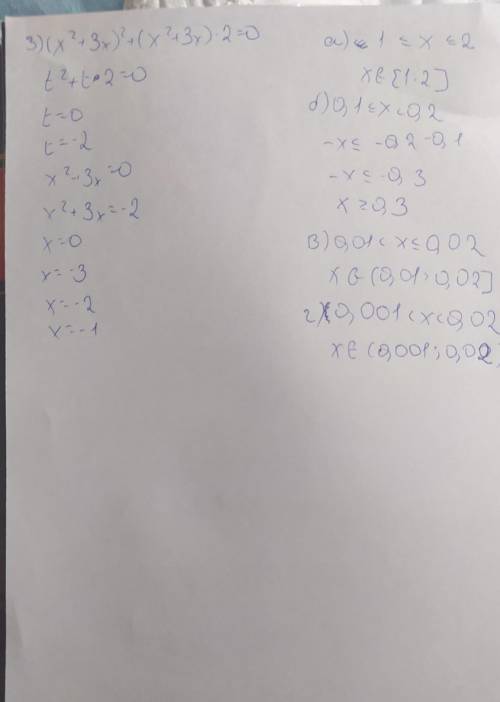 3) (x²+3x)²+(x²+3x)·2=0
t²+t·2=0
t=0
t=-2
x²+3x=0
x²+3x=-2
x=0
x=-3
x=-2
x=-1
а) 1 ≤ x ≤ 2
x∈[1;2]
б) 0,1≤x<0,2
-x≤ -0,2-0,1
-x≤-0,3
x≥0,3
в) 0,01<x≤0,02
x∈(0,01;0,02]
г) 0,001<x<0,02
x∈(0,001;0,02)